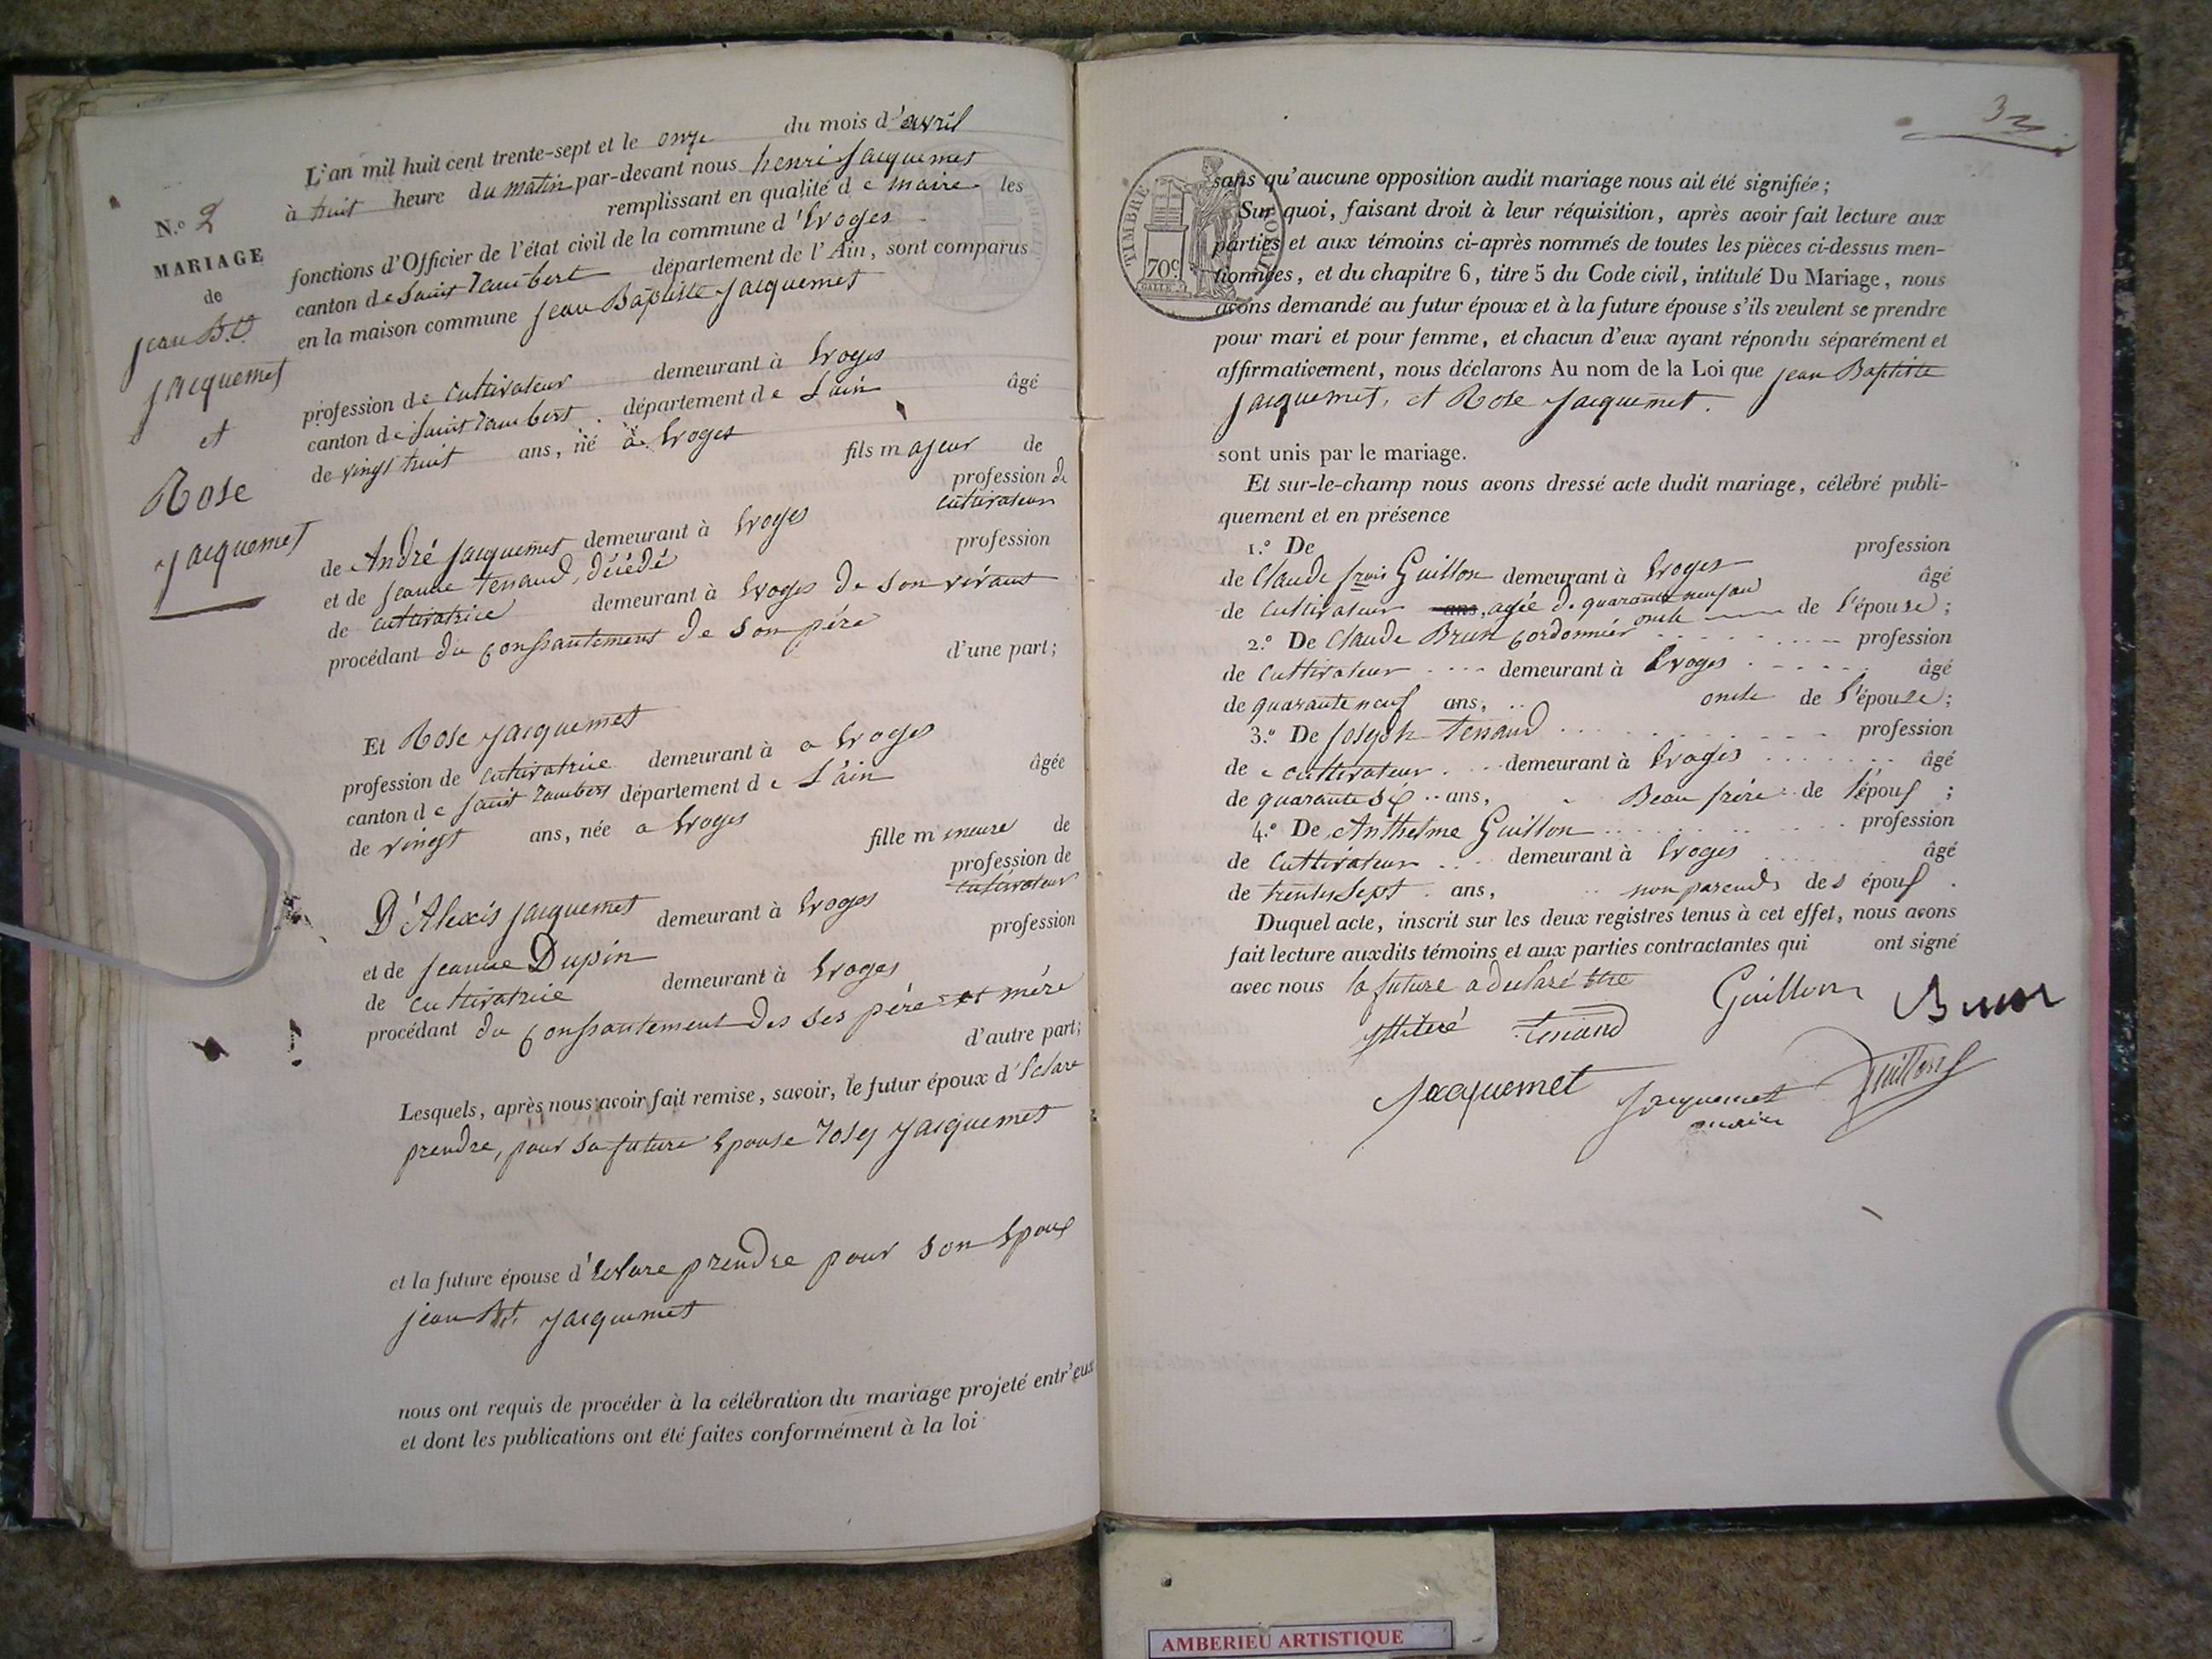 N.o 2
MARIAGE
de
jean B.te
jacquemet
et
Rose
jacquemet
L'an mil huit cent trente-sept et le onze du mois d'avril
à huit heure du matin par-devant nous henri jacquemet
remplissant en qualité de maire les
fonctions d'Officier de l'état civil de la commune d'Evoges
canton de Saint Rambert département de l'Ain, sont comparus
en la maison commune jean Baptiste jacquemet
profession de cultivateur demeurant à Evoges
canton de Saint rambert département de L'ain âgé
de vingt huit ans, né à Evoges
fils majeur de
profession de
de André jacquemet demeurant à Evoges cultivateur
et de jeanne tenand, décédé profession
de cultivatrice demeurant à Evoges de son vivant
procédant du consantement de son père
d'une part;
Et Rose jacquemet
profession de cultivatrice demeurant à a Evoges
canton de saint rambert département de L'ain âgée
de vingt ans, née a Evoges
fille mineure de
profession de
D'Alexis jacquemet demeurant à Evoges cultivateur
et de jeanne Dupin profession
de cultivatrice demeurant à Evoges
procédant du consantement des ses père et mére
d'autre part;
Lesquels, après nous avoir fait remise, savoir, le futur époux d'Eclare
prendre, pour sa future Epouse rosey jacquemet
et la future épouse d'Eclare prendre pour son Epoux
jean Bt. jacquemet
nous ont requis de procéder à la célébration du mariage projeté entr'eux
et dont les publications ont été faites conformément à la loi
3
TIMBRE ROYAL
70c
sans qu'aucune opposition audit mariage nous ait été signifiée;
Sur quoi, faisant droit à leur réquisition, après avoir fait lecture aux
parties et aux témoins ci-après nommés de toutes les pièces ci-dessus men-
tionnées, et du chapitre 6, titre 5 du Code civil, intitulé Du Mariage, nous
avons demandé au futur époux et à la future épouse s'ils veulent se prendre
pour mari et pour femme, et chacun d'eux ayant répondu séparément et
affirmativement, nous déclarons Au nom de la Loi que jean Baptiste
jacquemet, et Rose jacquemet.
sont unis par le mariage.
Et sur-le-champ nous avons dressé acte dudit mariage, célébré publi-
quement et en présence
1.o De profession
de Claude frois Guillon demeurant à Evoges âgé
de cultivateur ans, agée de quarante neuf an oncle de l'épouse;
2.o De Claude Brun cordonnier profession
de cultivateur demeurant à Evoges âgé
de quarante neuf ans, oncle de l'épouse;
3.o De joseph tenand profession
de cultivateur demeurant à Evoges âgé
de quarante six ans, Beau frère de l'époux;
4.o De Anthelme Guillon profession
de cultivateur demeurant à Evoges âgé
de trente sept ans, non parends des époux.
Duquel acte, inscrit sur les deux registres tenus à cet effet, nous avons
fait lecture auxdits témoins et aux parties contractantes qui ont signé
avec nous la future a declaré etre
illiteré tenand Guillon Brun
Jacquemet jacquemet maire Guillon
AMBERIEU ARTISTIQUE